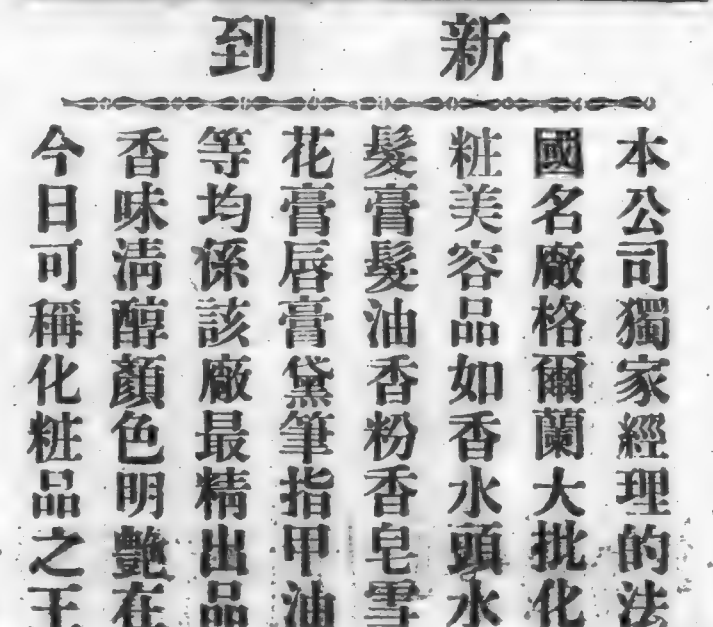 新到
本公司獨家經理的法
國名廠格爾蘭大批化
粧美容品如香水頭水
髮膏髮油香粉香皂雪
花膏唇膏黛筆指甲油
等均係該廠最精出品
香味清醇顏色明艷在
今日可稱化粧品之王